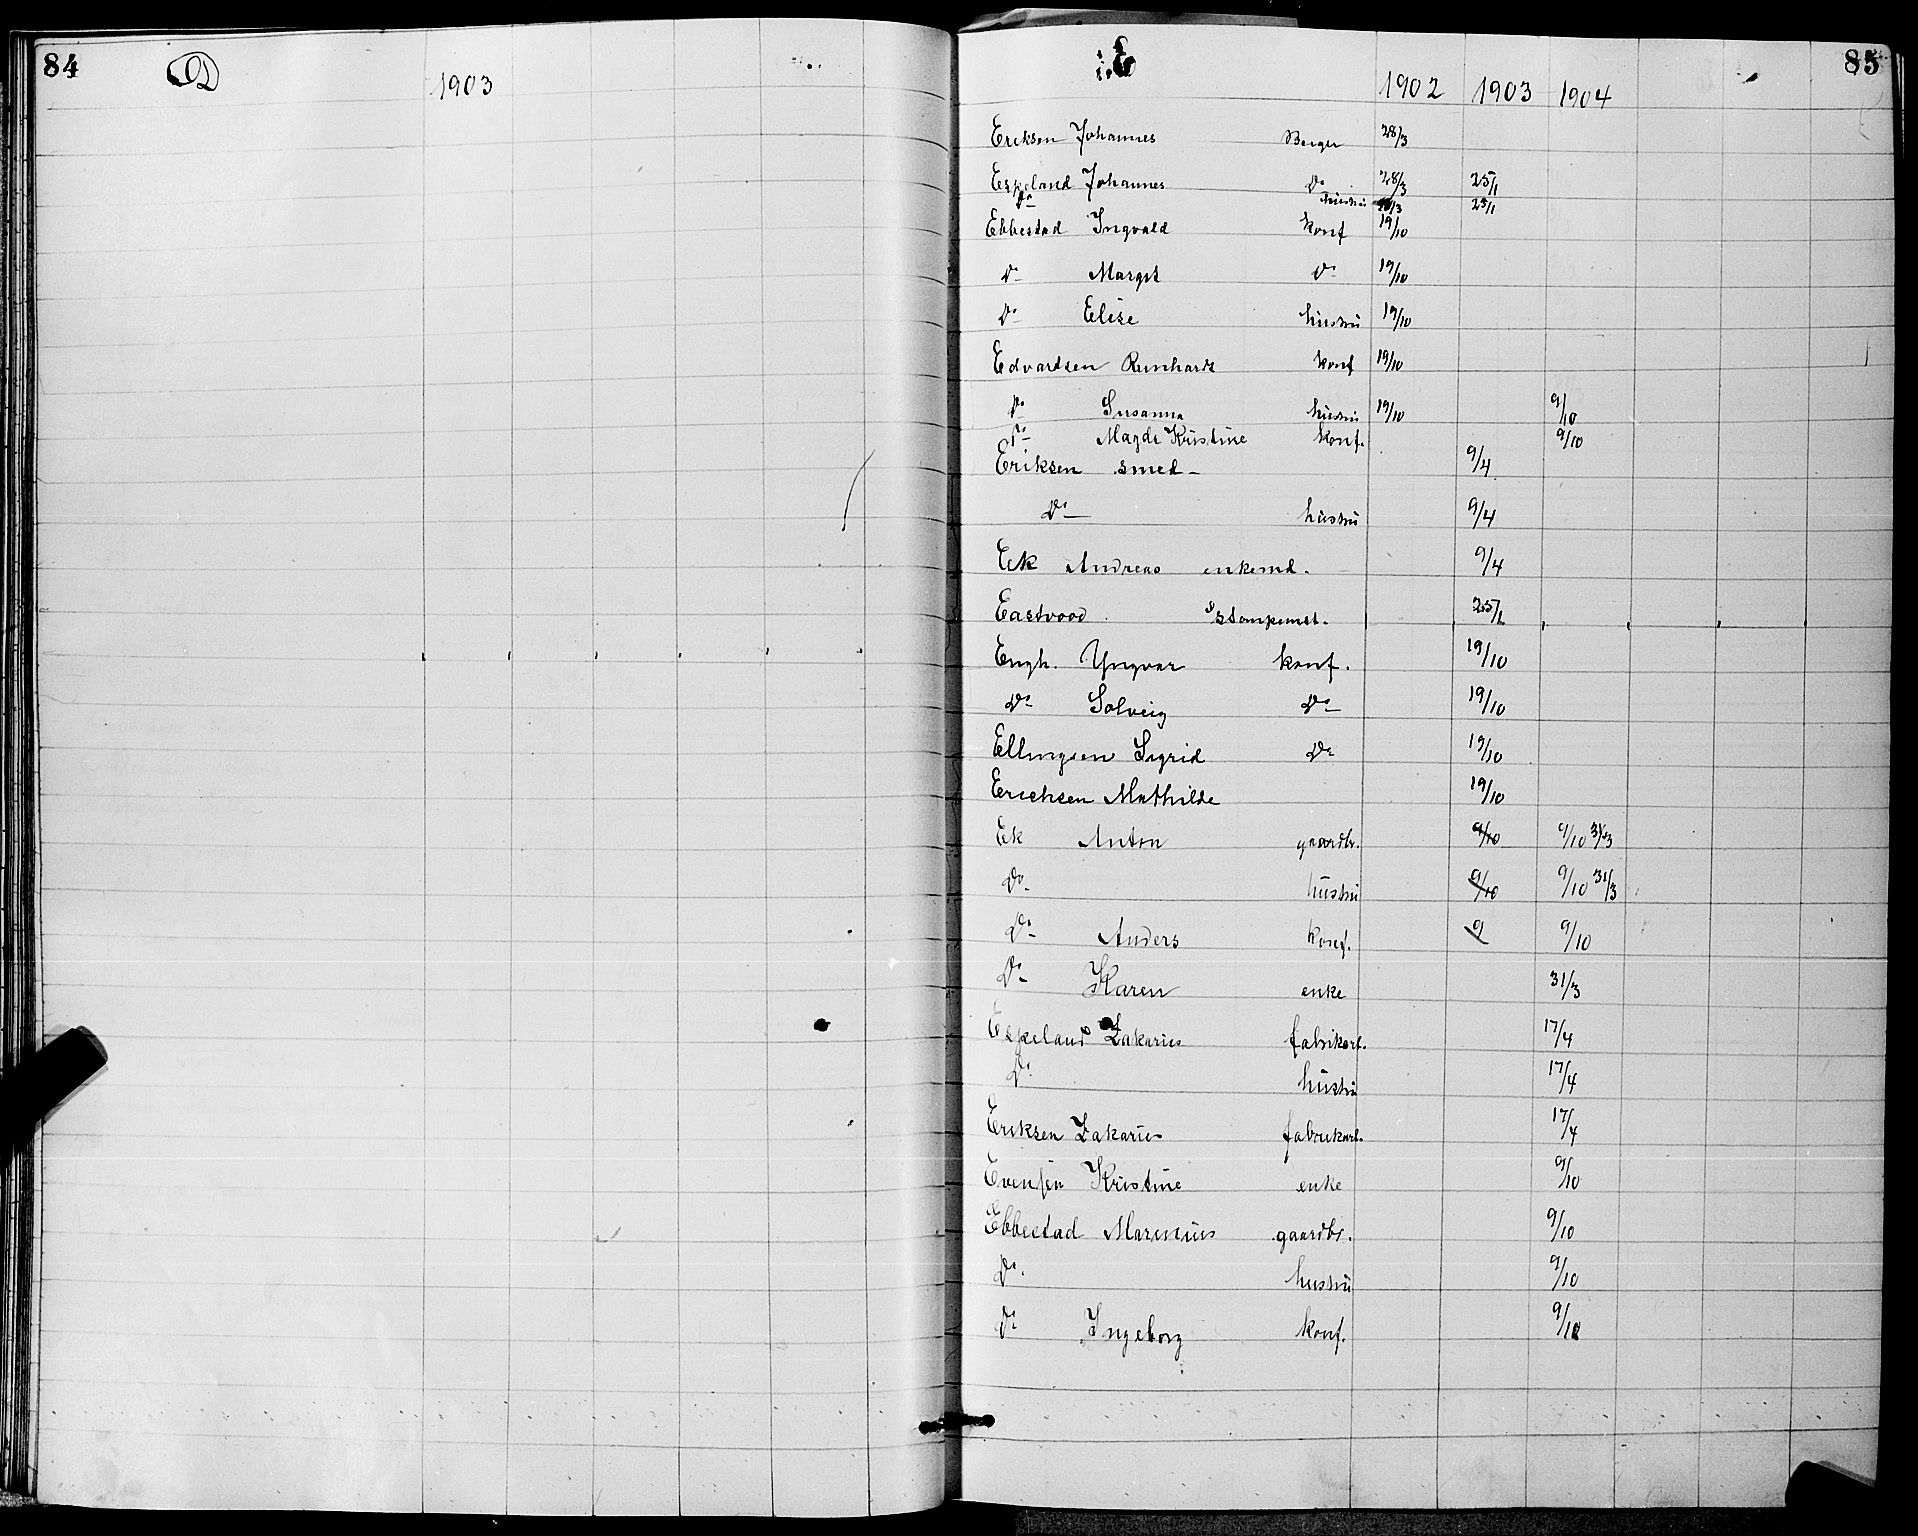 84 D 1903
E 85
1902 1903 1904
Eriksen Johannes Berger 28/3
Espeland Johannes Do 28/3 25/1
Do hustru 28/3 25/1
Ebbestad Ingvald konf 19/10
Do Margit Do 19/10
Do Elise hustru 19/10
Edvardsen Reinhardt konf 19/10
Do Susanna hustru 19/10 9/10
Do Magda Kristine konf. 9/10
Eriksen smed 9/4
Do hustru 9/4
Eek Andreas enkemd. 9/4
Eastvood 25/1
Engh. Yngvar konf. 19/10
Do Solveig Do 19/10
Ellingsen Sigrid Do 19/10
Erichsen Mathilde 19/10
Ek Anton gaardbr. 9/10 9/10 31/3
Do hustru 9/10 9/10 31/3
Do Anders konf. 9 9/10
Do Karen enke 31/3
Espeland Zakarias fabrikarb. 17/4
Do hustru 17/4
Eriksen Zakarias fabrikarb. 17/4
Evensen Kristine enke 9/10
Ebbestad Marenius gaardbr. 9/10
Do. hustru 9/10
Do Ingeborg konf. 9/10